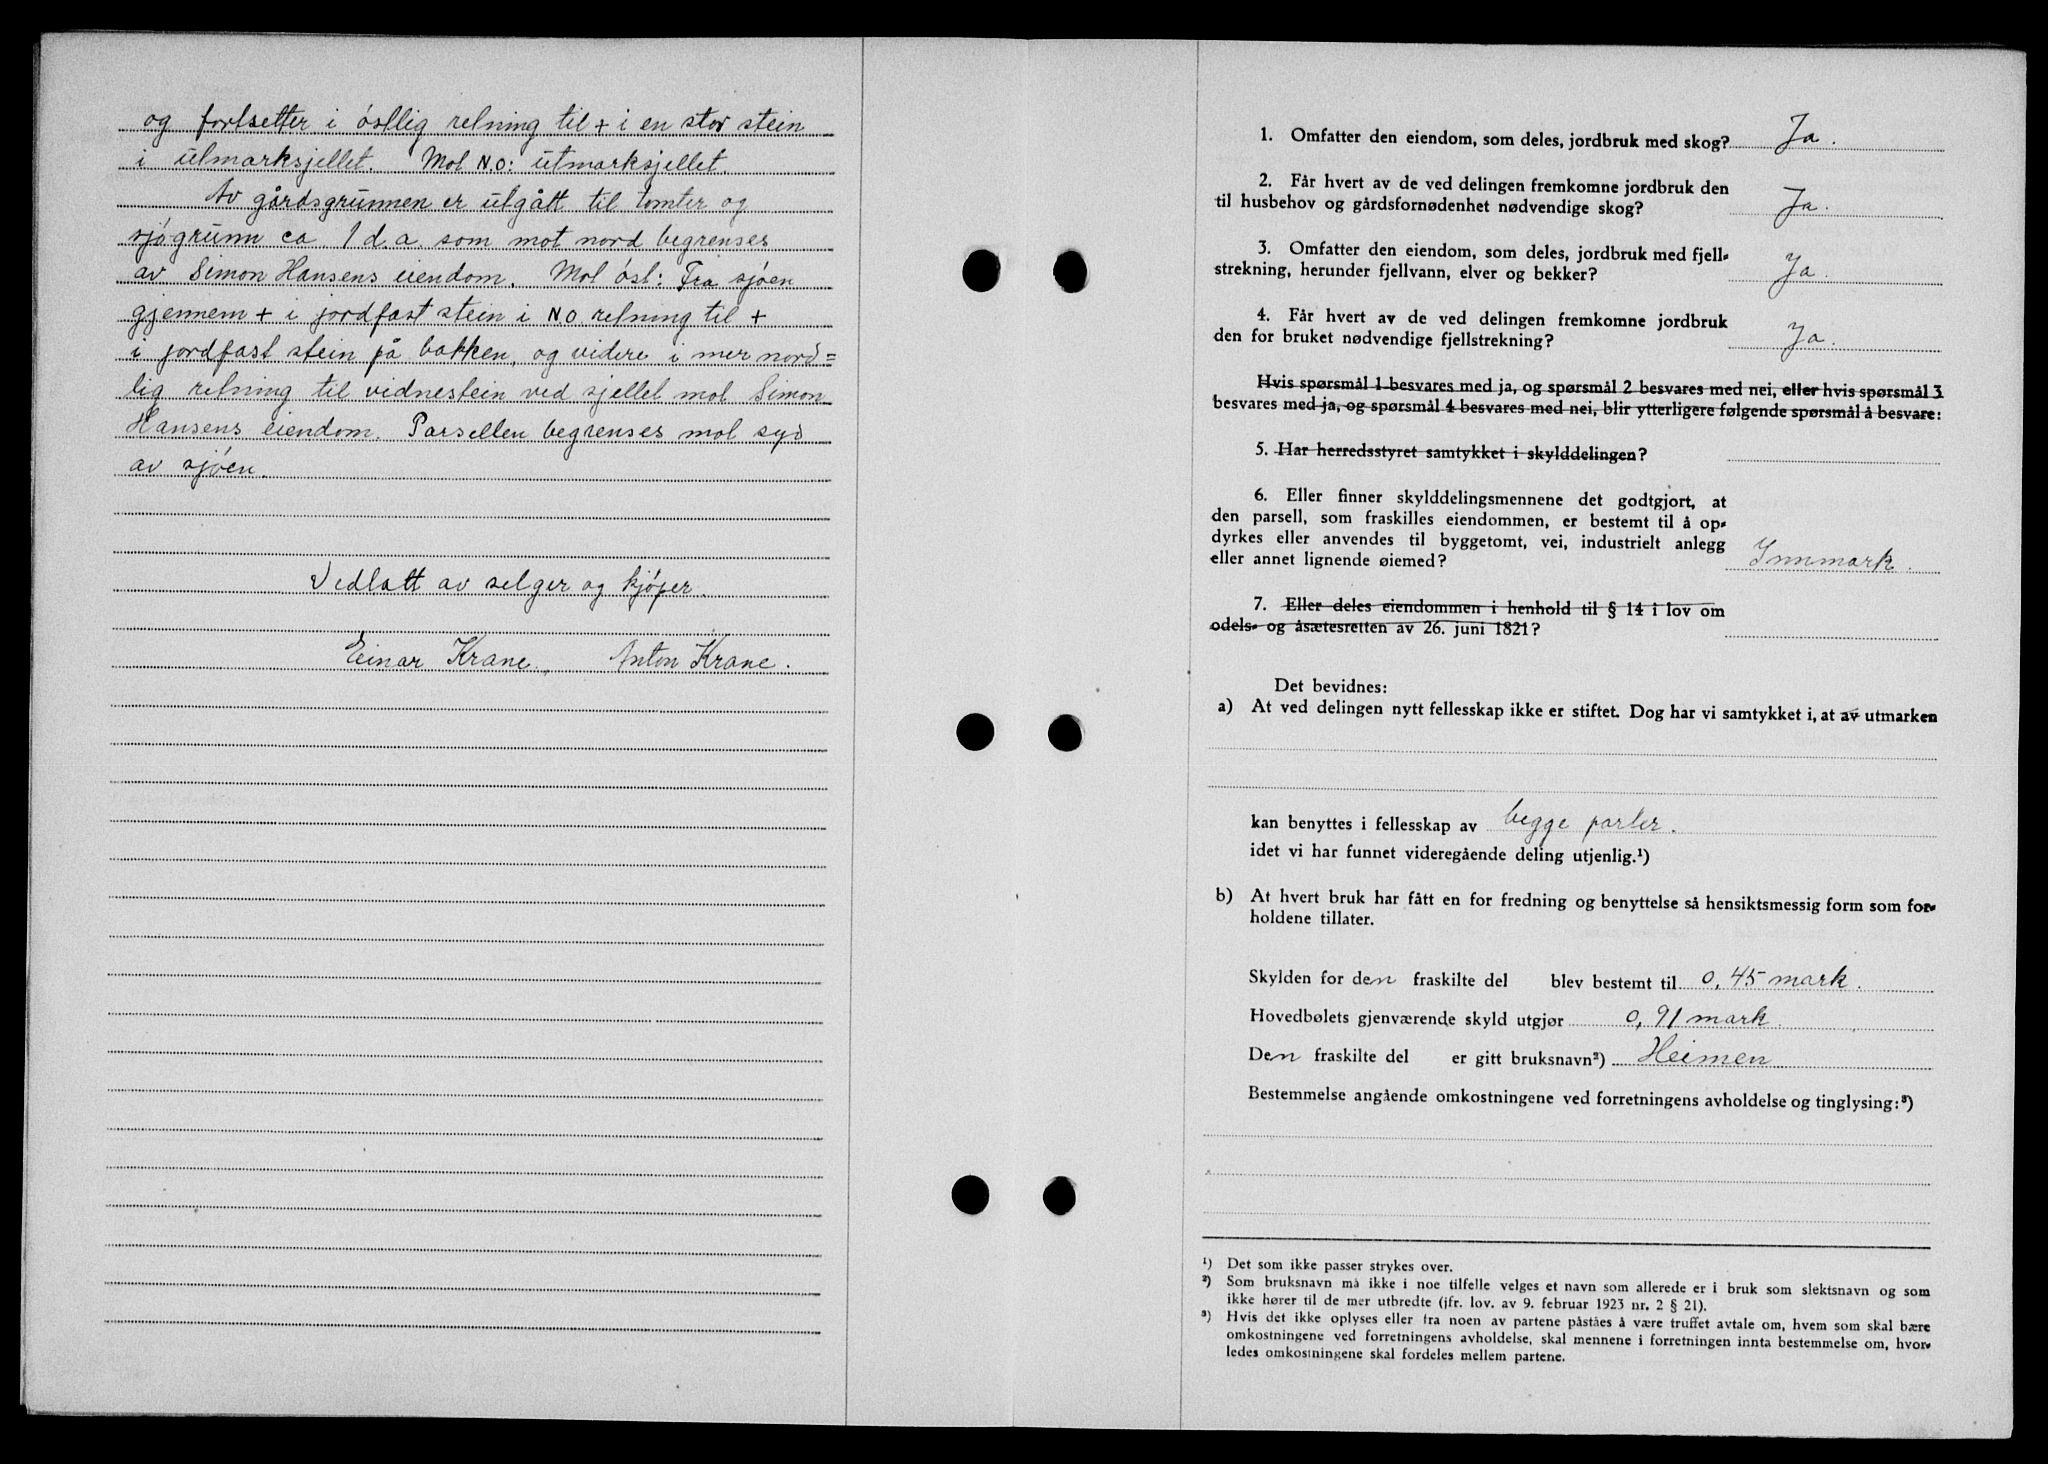 og fortsetter i östlig retning til + i en stor stein
i utmarksjellet. Mot N.O: utmarksjellet.
Av gårdsgrunnen er utgått til tomter og
sjögrunn ca 1 d.a. som mot nord begrenses
av Simon Hansens eiendom. Mot öst: Fra sjöen
gjennem + i jordfast stein i NO retning til +
i jordfast stein på bakken, og videre i mer nord=
lig retning til vidnestein ved sjellet mot Simon
Hansens eiendom. Parsellen begrenses mot syd
av sjöen.
Vedtatt av selger og kjöper.
Einar Krane. Anton Krane.
1. Omfatter den eiendom, som deles, jordbruk med skog? Ja.
2. Får hvert av de ved delingen fremkomne jordbruk den
til husbehov og gårdsfornødenhet nødvendige skog? Ja.
3. Omfatter den eiendom, som deles, jordbruk med fjell-
strekning, herunder fjellvann, elver og bekker? Ja.
4. Får hvert av de ved delingen fremkomne jordbruk
den for bruket nødvendige fjellstrekning? Ja.
Hvis spørsmål 1 besvares med ja, og spørsmål 2 besvares med nei, eller hvis spørsmål 3
besvares med ja, og spørsmål 4 besvares med nei, blir ytterligere følgende spørsmål å besvare:
5. Har herredsstyret samtykket i skylddelingen?
6. Eller finner skylddelingsmennene det godtgjort, at
den parsell, som fraskilles eiendommen, er bestemt til å op-
dyrkes eller anvendes til byggetomt, vei, industrielt anlegg
eller annet lignende øiemed? Innmark.
7. Eller deles eiendommen i henhold til § 14 i lov om
odels- og åsætesretten av 26. juni 1821?
Det bevidnes:
a) At ved delingen nytt fellesskap ikke er stiftet. Dog har vi samtykket i, at av utmarken
kan benyttes i fellesskap av begge parter.
idet vi har funnet videregående deling utjenlig.¹)
b) At hvert bruk har fått en for fredning og benyttelse så hensiktsmessig form som for-
holdene tillater.
Skylden for den fraskilte del blev bestemt til 0,45 mark.
Hovedbølets gjenværende skyld utgjør 0,91 mark.
Den fraskilte del er gitt bruksnavn²) Heimen
Bestemmelse angående omkostningene ved forretningens avholdelse og tinglysing:³)
¹) Det som ikke passer strykes over.
²) Som bruksnavn må ikke i noe tilfelle velges et navn som allerede er i bruk som slektsnavn og som
ikke hører til de mer utbredte (jfr. lov. av 9. februar 1923 nr. 2 § 21).
³) Hvis det ikke oplyses eller fra noen av partene påståes å være truffet avtale om, hvem som skal bære
omkostningene ved forretningens avholdelse, skal mennene i forretningen innta bestemmelse om, hvor-
ledes omkostningene skal fordeles mellem partene.